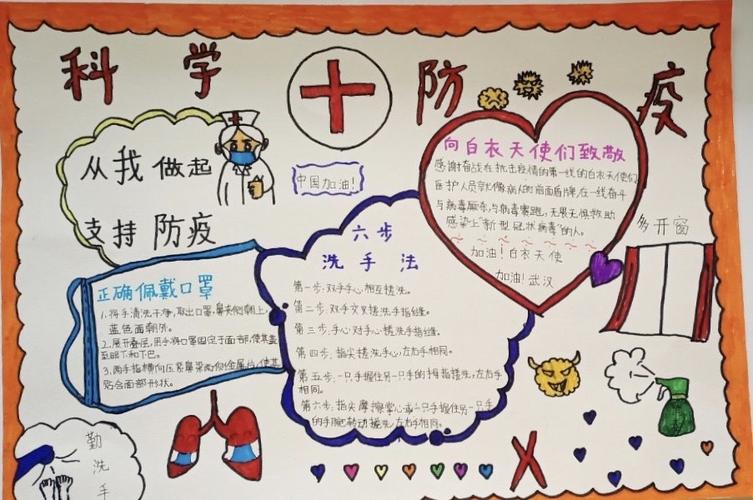 科学防疫
从我做起
支持防疫
中国加油!
向白衣天使们致敬
感谢奋战在抗击疫情的第一线的白衣天使们
医护人员就像病人的前面盾牌,在一线奋斗
与病毒厮杀,与病毒赛跑,无畏无惧救助
感染上“新型冠状病毒”的人。
加油!白衣天使
加油!武汉
多开窗
正确佩戴口罩
1.将手清洗干净,取出口罩,鼻夹侧朝上,
蓝色面朝外。
2.展开叠层,用手将口罩固定于面部,使其盖
至眼下和下巴。
3.两手指横向压紧鼻梁两侧金属片,使其
贴合面部形状。
六步
洗手法
第一步:双手手心相互搓洗。
第二步:双手交叉搓洗手指缝。
第三步:手心对手心搓洗手指缝。
第四步:指尖搓洗手心,左右手相同。
第五步:一只手握住另一只手的拇指搓洗,左右手
相同。
第六步:指尖摩擦掌心或一只手握住另一只手
的手腕转动搓洗,左右手相同。
勤洗手